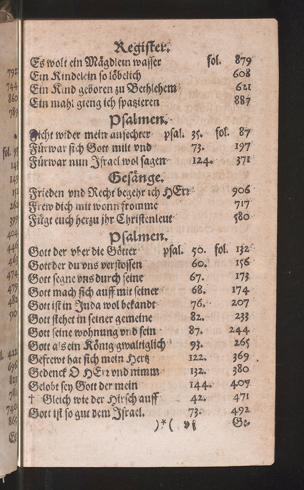 Register.
Es wolt ein Mägdlein wasser fol. 879
Ein Kindelein so löbelich 608
Ein Kind geboren zu Bethlehem 621
Ein mahl gieng ich spatzieren 887
Psalmen.
Ficht wider mein anfechter psal. 35. fol. 87
Fürwar sich Gott milt vnd 73. 197
Fürwar nun Israel wol sagen 124. 371
Gesänge.
Frieden vnd Recht begehr ich HErr 906
Frew dich mit wonn fromme 717
Fügt euch herzu jhr Christenleut 580
Psalmen.
Gott der vber die Götter psal. 50. fol. 132
Gott der du vns verstossen 60. 156
Gott segne vns durch seine 67. 173
Gott mach sich auff mit seiner 68. 174
Gott ist in Juda wol bekandt 76. 207
Gott stehet in seiner gemeine 82. 233
Gott seine wohnung vnd sein 87. 244
Gott als ein König gwaltiglich 93. 265
Gefrewt hat sich mein Hertz 122. 369
Gedenck O HErr vnd nimm 132. 380
Gelobt sey Gott der mein 144. 407
† Gleich wie der Hirsch auff 42. 471
Gott ist so gut dem Israel. 73. 492
)*(